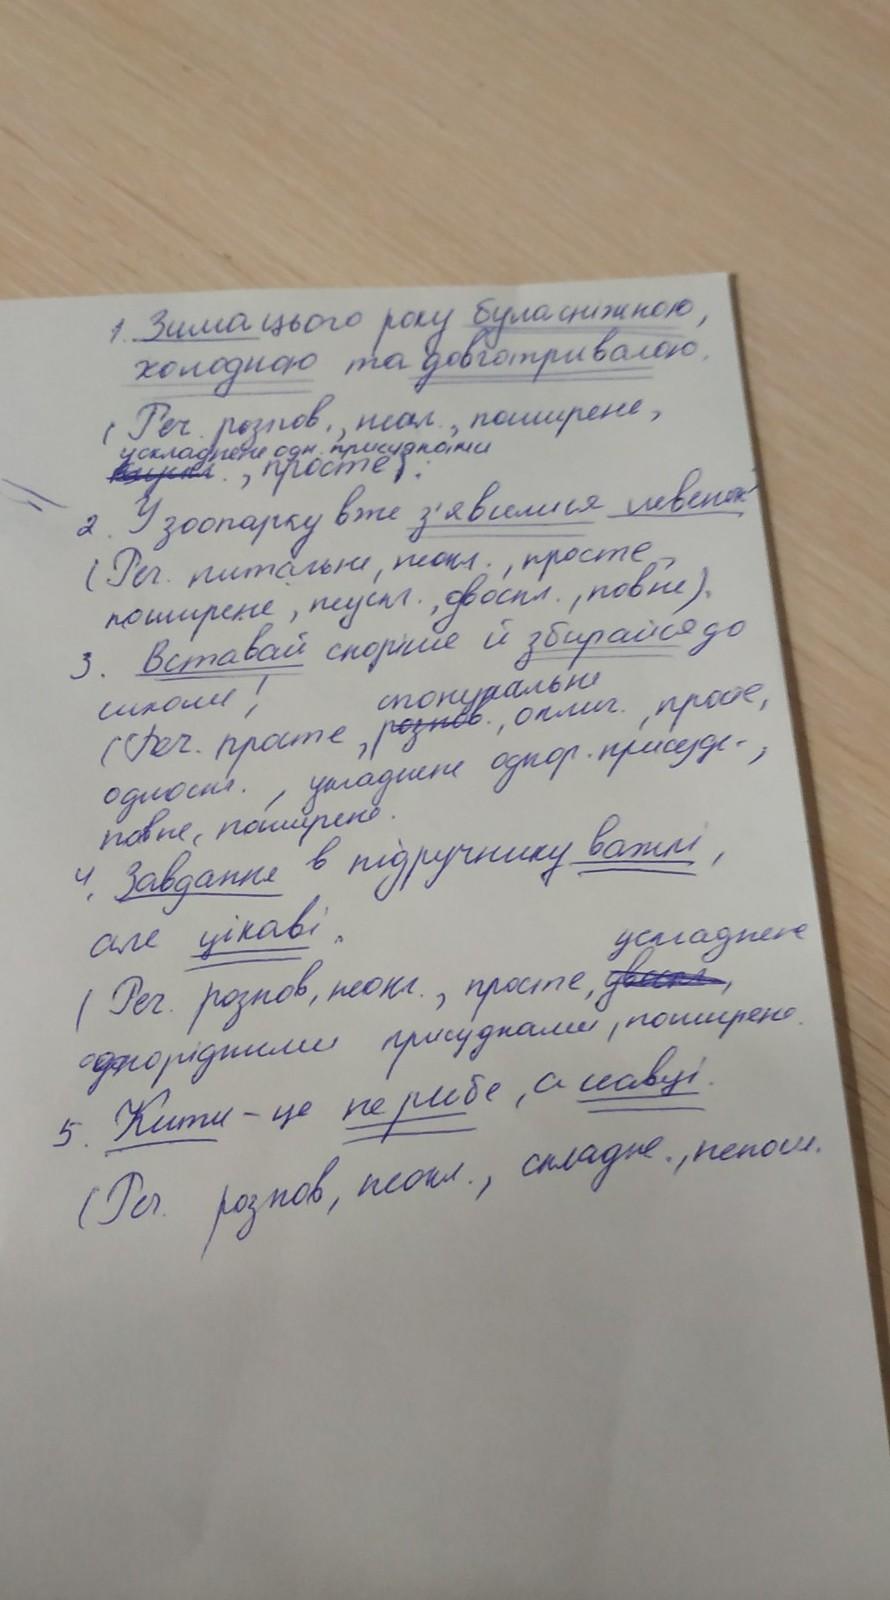 1. Зима цього року була сніжною,
холодною та довготривалою.
(Реч. розпов., неокл., поширене,
ускладнене одн. присудками
, просте).
2. У зоопарку вже з'явилися левенят
(Реч. питальне, неокл., просте,
поширене, неускл., двоскл., повне).
3. Вставай скоріше й збирайся до
школи!
спонукальне
(Реч. просте, розпов., оклич., просте,
односкл., ускладнене однор. присудк.,
повне, поширене.
4. Завдання в підручнику важкі,
але цікаві.
ускладнене
(Реч. розпов, неокл., просте, двоскл.,
однорідними присудками, поширене.
5. Кити – це не риби, а ссавці.
(Реч. розпов, неокл., складне., непош.